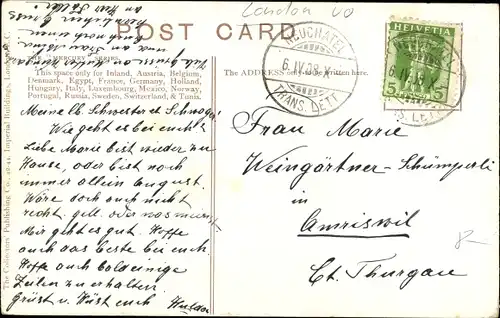 London
POST CARD
THE "MERCURY" SERIES.
This space only for Inland, Austria, Belgium,
Denmark, Egypt, France, Germany, Holland,
Hungary, Italy, Luxembourg, Mexico, Norway,
Portugal, Russia, Sweden, Switzerland, & Tunis.
The ADDRESS only to be written here.
The Collectors' Publishing Co., Imperial Buildings,
Meine lb. Schwester et Schwager
Wie geht es bei euch.
Liebe Marie bist wieder zu
Hause, oder bist noch
immer allein august.
Wäre doch auch nicht
recht. gell. oder was meinst
Mir geht es gut. Hoffe
auch das beste bei euch.
Hoffe auch bald einige
Zeilen zu erhalten.
Grüst u. Küst euch Hulda
NEUCHATEL
6.IV.08.X
TRANS. LETT.
HELVETIA
5
6.IV.08.X
Frau Marie
Weingärtner-Schümperli
in
Amriswil
Ct. Thurgau
8-